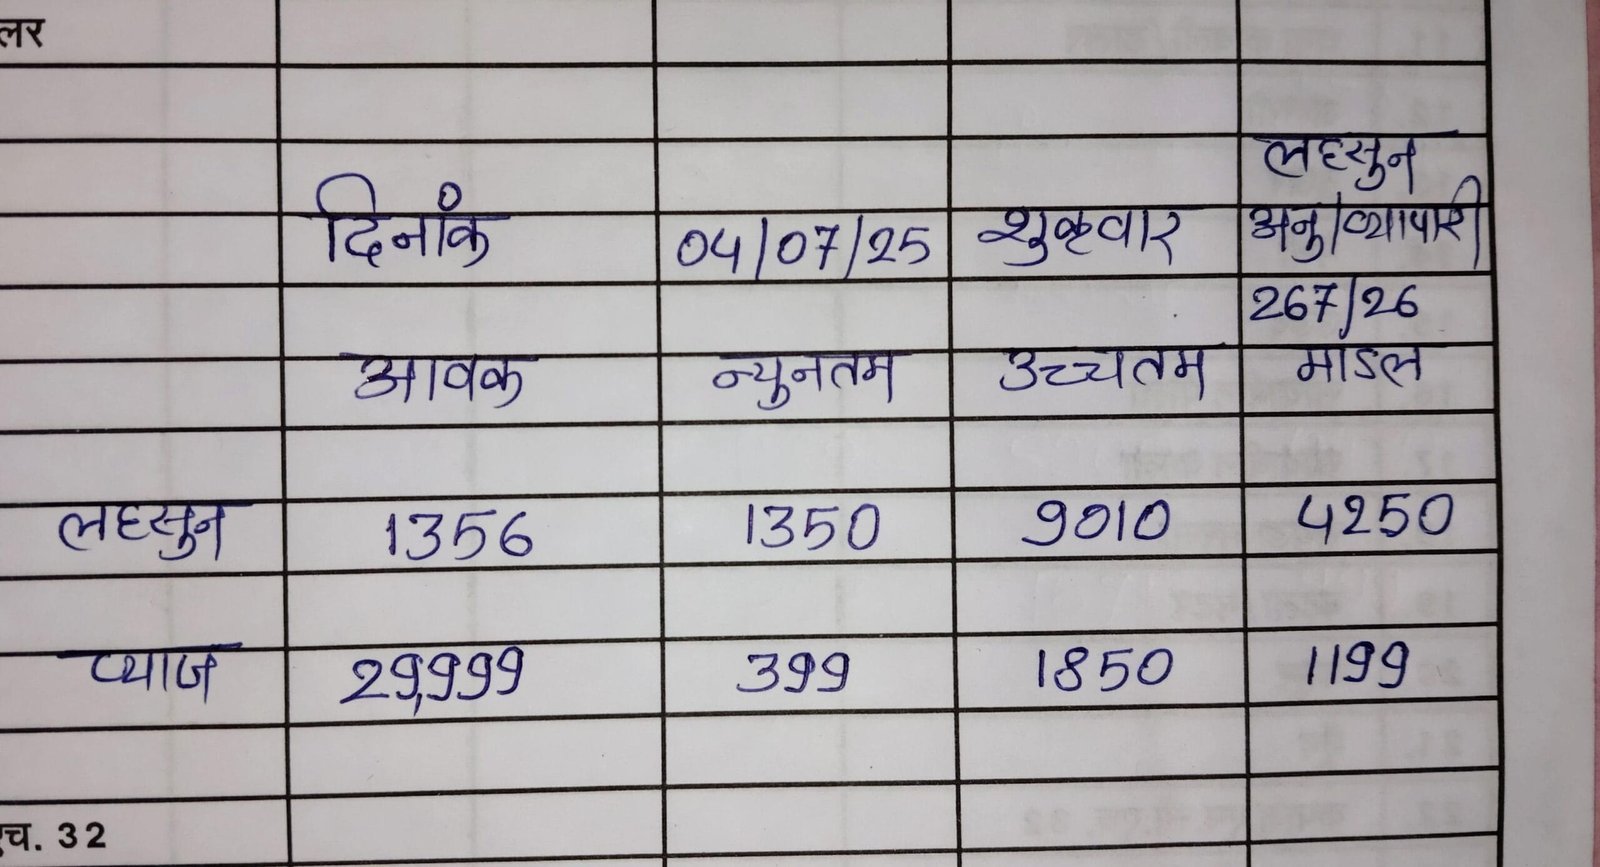 लर
लहसुन
दिनांक 04/07/25 शुक्रवार अनु/व्यापारी
267/26
आवक न्युनतम उच्चतम माडल
लहसुन 1356 1350 9010 4250
प्याज 29,999 399 1850 1199
एच. 32